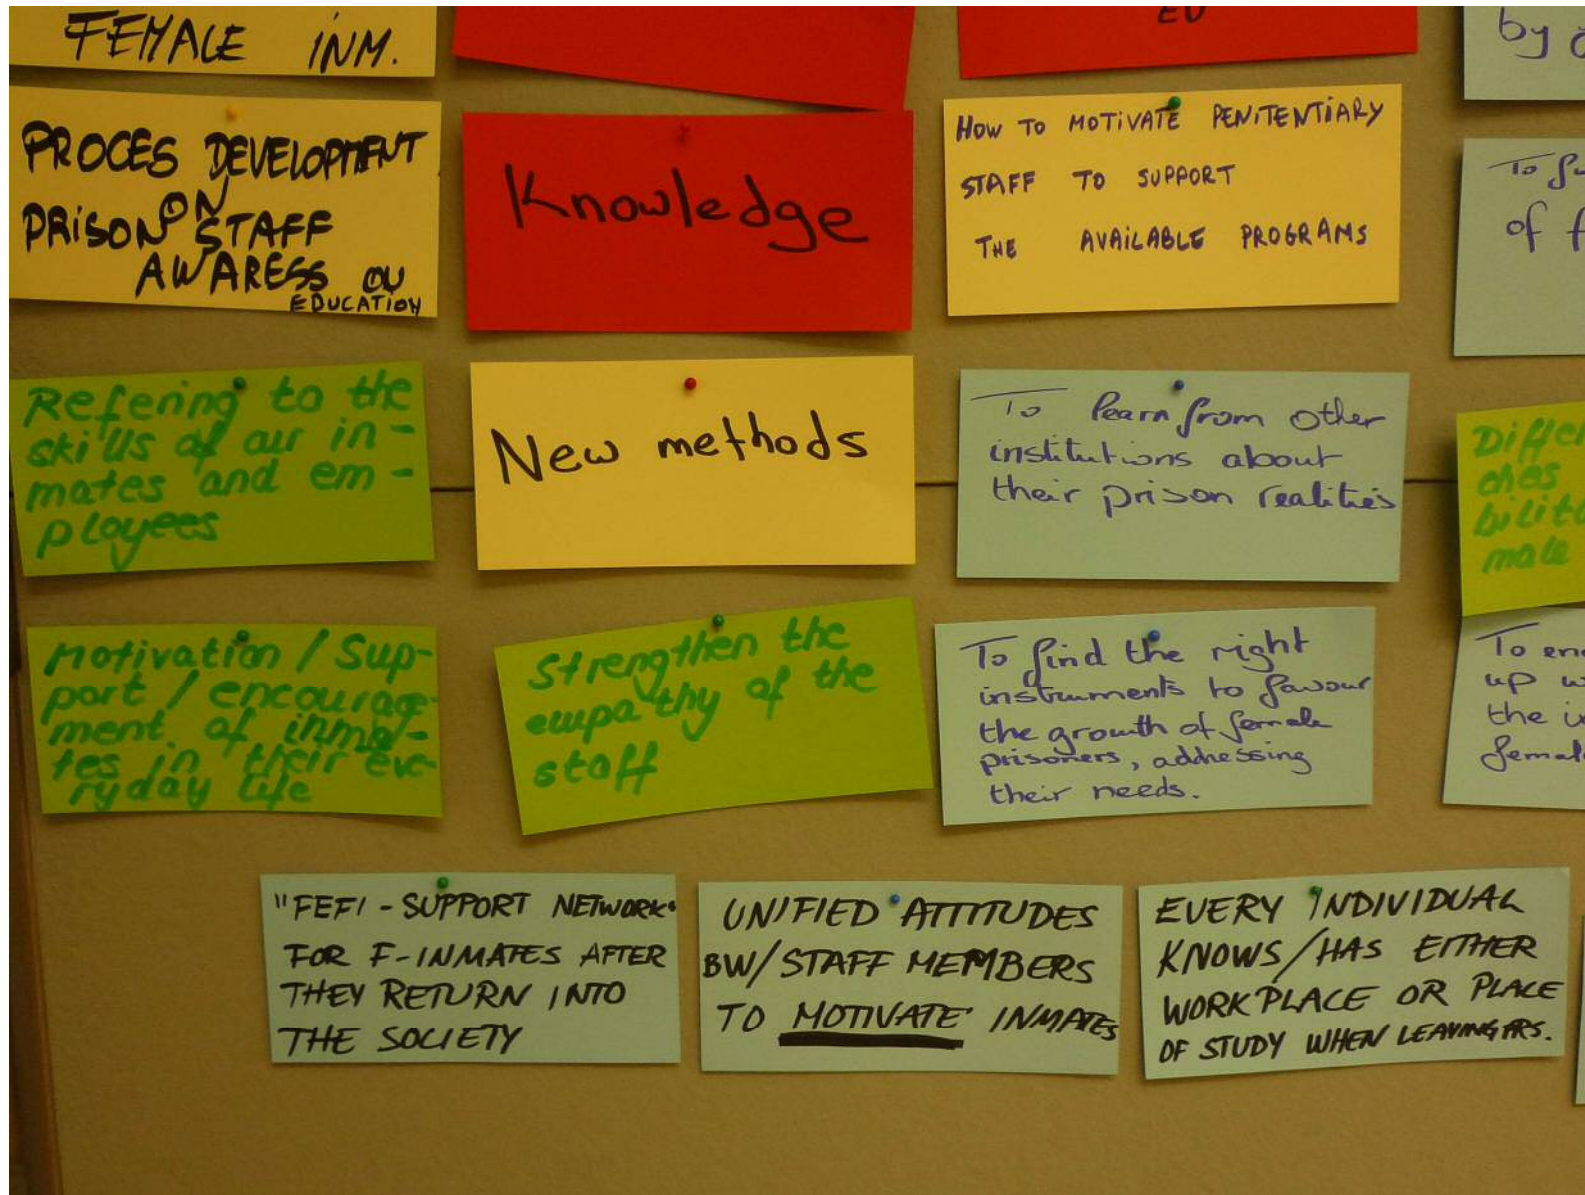 FEMALE INM.
EU
by
PROCES DEVELOPMENT
ON
PRISON STAFF
AWARESS OU
EDUCATION
Knowledge
HOW TO MOTIVATE PENITENTIARY
STAFF TO SUPPORT
THE AVAILABLE PROGRAMS
To
of
Refering to the
skills of our in-
mates and em-
ployees
New methods
To learn from other
institutions about
their prison realities
Differ
ches
bilita
male
Motivation / Sup-
port / encourage-
ment of inma-
tes in their eve-
ryday life
Strengthen the
empathy of the
staff
To find the right
instruments to favour
the growth of female
prisoners, addressing
their needs.
To en
up w
the i
female
"FEFI - SUPPORT NETWORK"
FOR F-INMATES AFTER
THEY RETURN INTO
THE SOCIETY
UNIFIED ATTITUDES
BW/STAFF MEMBERS
TO MOTIVATE INMATES
EVERY INDIVIDUAL
KNOWS/HAS EITHER
WORKPLACE OR PLACE
OF STUDY WHEN LEAVING PRS.